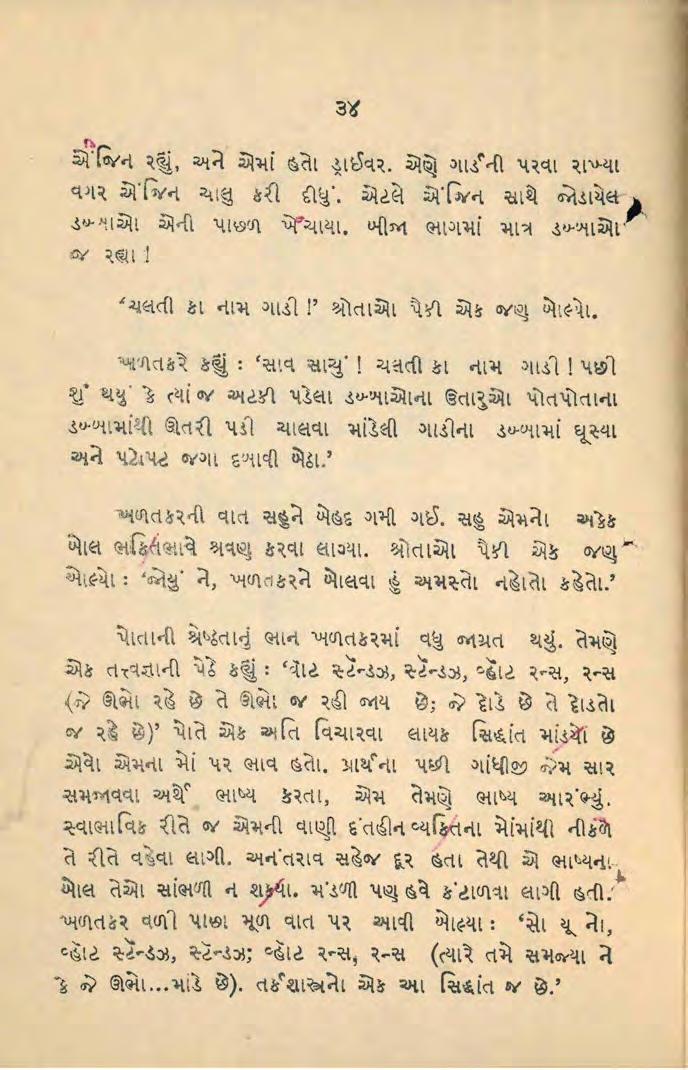 ૩૪
એંજિન રહ્યું, અને એમાં હતો ડ્રાઈવર. એણે ગાર્ડની પરવા રાખ્યા
વગર એંજિન ચાલુ કરી દીધું. એટલે એંજિન સાથે જોડાયેલ
ડબ્બાઓ એની પાછળ ખેંચાયા. બીજા ભાગમાં માત્ર ડબ્બાઓ
જ રહ્યા !
‘ચલતી કા નામ ગાડી !’ શ્રોતાઓ પૈકી એક જણ બોલ્યો.
ખળતકરે કહ્યું : ‘સાવ સાચું ! ચલતી કા નામ ગાડી ! પછી
શું થયું કે ત્યાં જ અટકી પડેલા ડબ્બાઓના ઉતારુઓ પોતપોતાના
ડબ્બામાંથી ઊતરી પડી ચાલવા માંડેલી ગાડીના ડબ્બામાં ઘૂસ્યા
અને પટોપટ જગા દબાવી બેઠા.’
ખળતકરની વાત સહુને બેહદ ગમી ગઈ. સહુ એમનો અકેક
બોલ ભક્તિભાવે શ્રવણ કરવા લાગ્યા. શ્રોતાઓ પૈકી એક જણ
બોલ્યો : ‘જોયું ને, ખળતકરને બોલવા હું અમસ્તો નહોતો કહેતો.’
પોતાની શ્રેષ્ઠતાનું ભાન ખળતકરમાં વધુ જાગ્રત થયું. તેમણે
એક તત્ત્વજ્ઞાની પેઠે કહ્યું : ‘વૉટ સ્ટૅન્ડઝ, સ્ટૅન્ડઝ, વ્હૉટ રન્સ, રન્સ
(જે ઊભો રહે છે તે ઊભો જ રહી જાય છે; જે દોડે છે તે દોડતો
જ રહે છે)’ પોતે એક અતિ વિચારવા લાયક સિદ્ધાંત માંડ્યો છે
એવો એમના મોં પર ભાવ હતો. પ્રાર્થના પછી ગાંધીજી જેમ સાર
સમજાવવા અર્થે ભાષ્ય કરતા, એમ તેમણે ભાષ્ય આરંભ્યું.
સ્વાભાવિક રીતે જ એમની વાણી દંતહીન વ્યક્તિના મોંમાંથી નીકળે
તે રીતે વહેવા લાગી. અનંતરાવ સહેજ દૂર હતા તેથી એ ભાષ્યના
બોલ તેઓ સાંભળી ન શક્યા. મંડળી પણ હવે કંટાળવા લાગી હતી.
ખળતકર વળી પાછા મૂળ વાત પર આવી બોલ્યા : ‘સો યૂ નો,
વ્હૉટ સ્ટૅન્ડઝ, સ્ટૅન્ડઝ; વ્હૉટ રન્સ, રન્સ (ત્યારે તમે સમજ્યા ને
કે જે ઊભો...માંડે છે). તર્કશાસ્ત્રનો એક આ સિદ્ધાંત જ છે.’